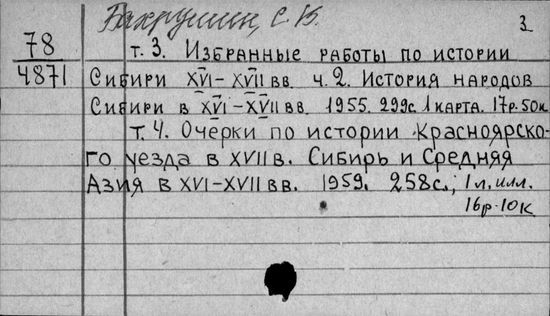 Бахрушин, С. В.
3
78
4871
т. 3. Избранные работы по истории
Сибири XVI–XVII вв. ч. 2. История народов
Сибири в XVI–XVII вв. 1955. 299с. 1 карта. 17р. 50к
т. 4. Очерки по истории Красноярско-
го уезда в XVII в. Сибирь и Средняя
Азия в XVI–XVII вв. 1959. 258с., 1 л. илл.
16р. 10к